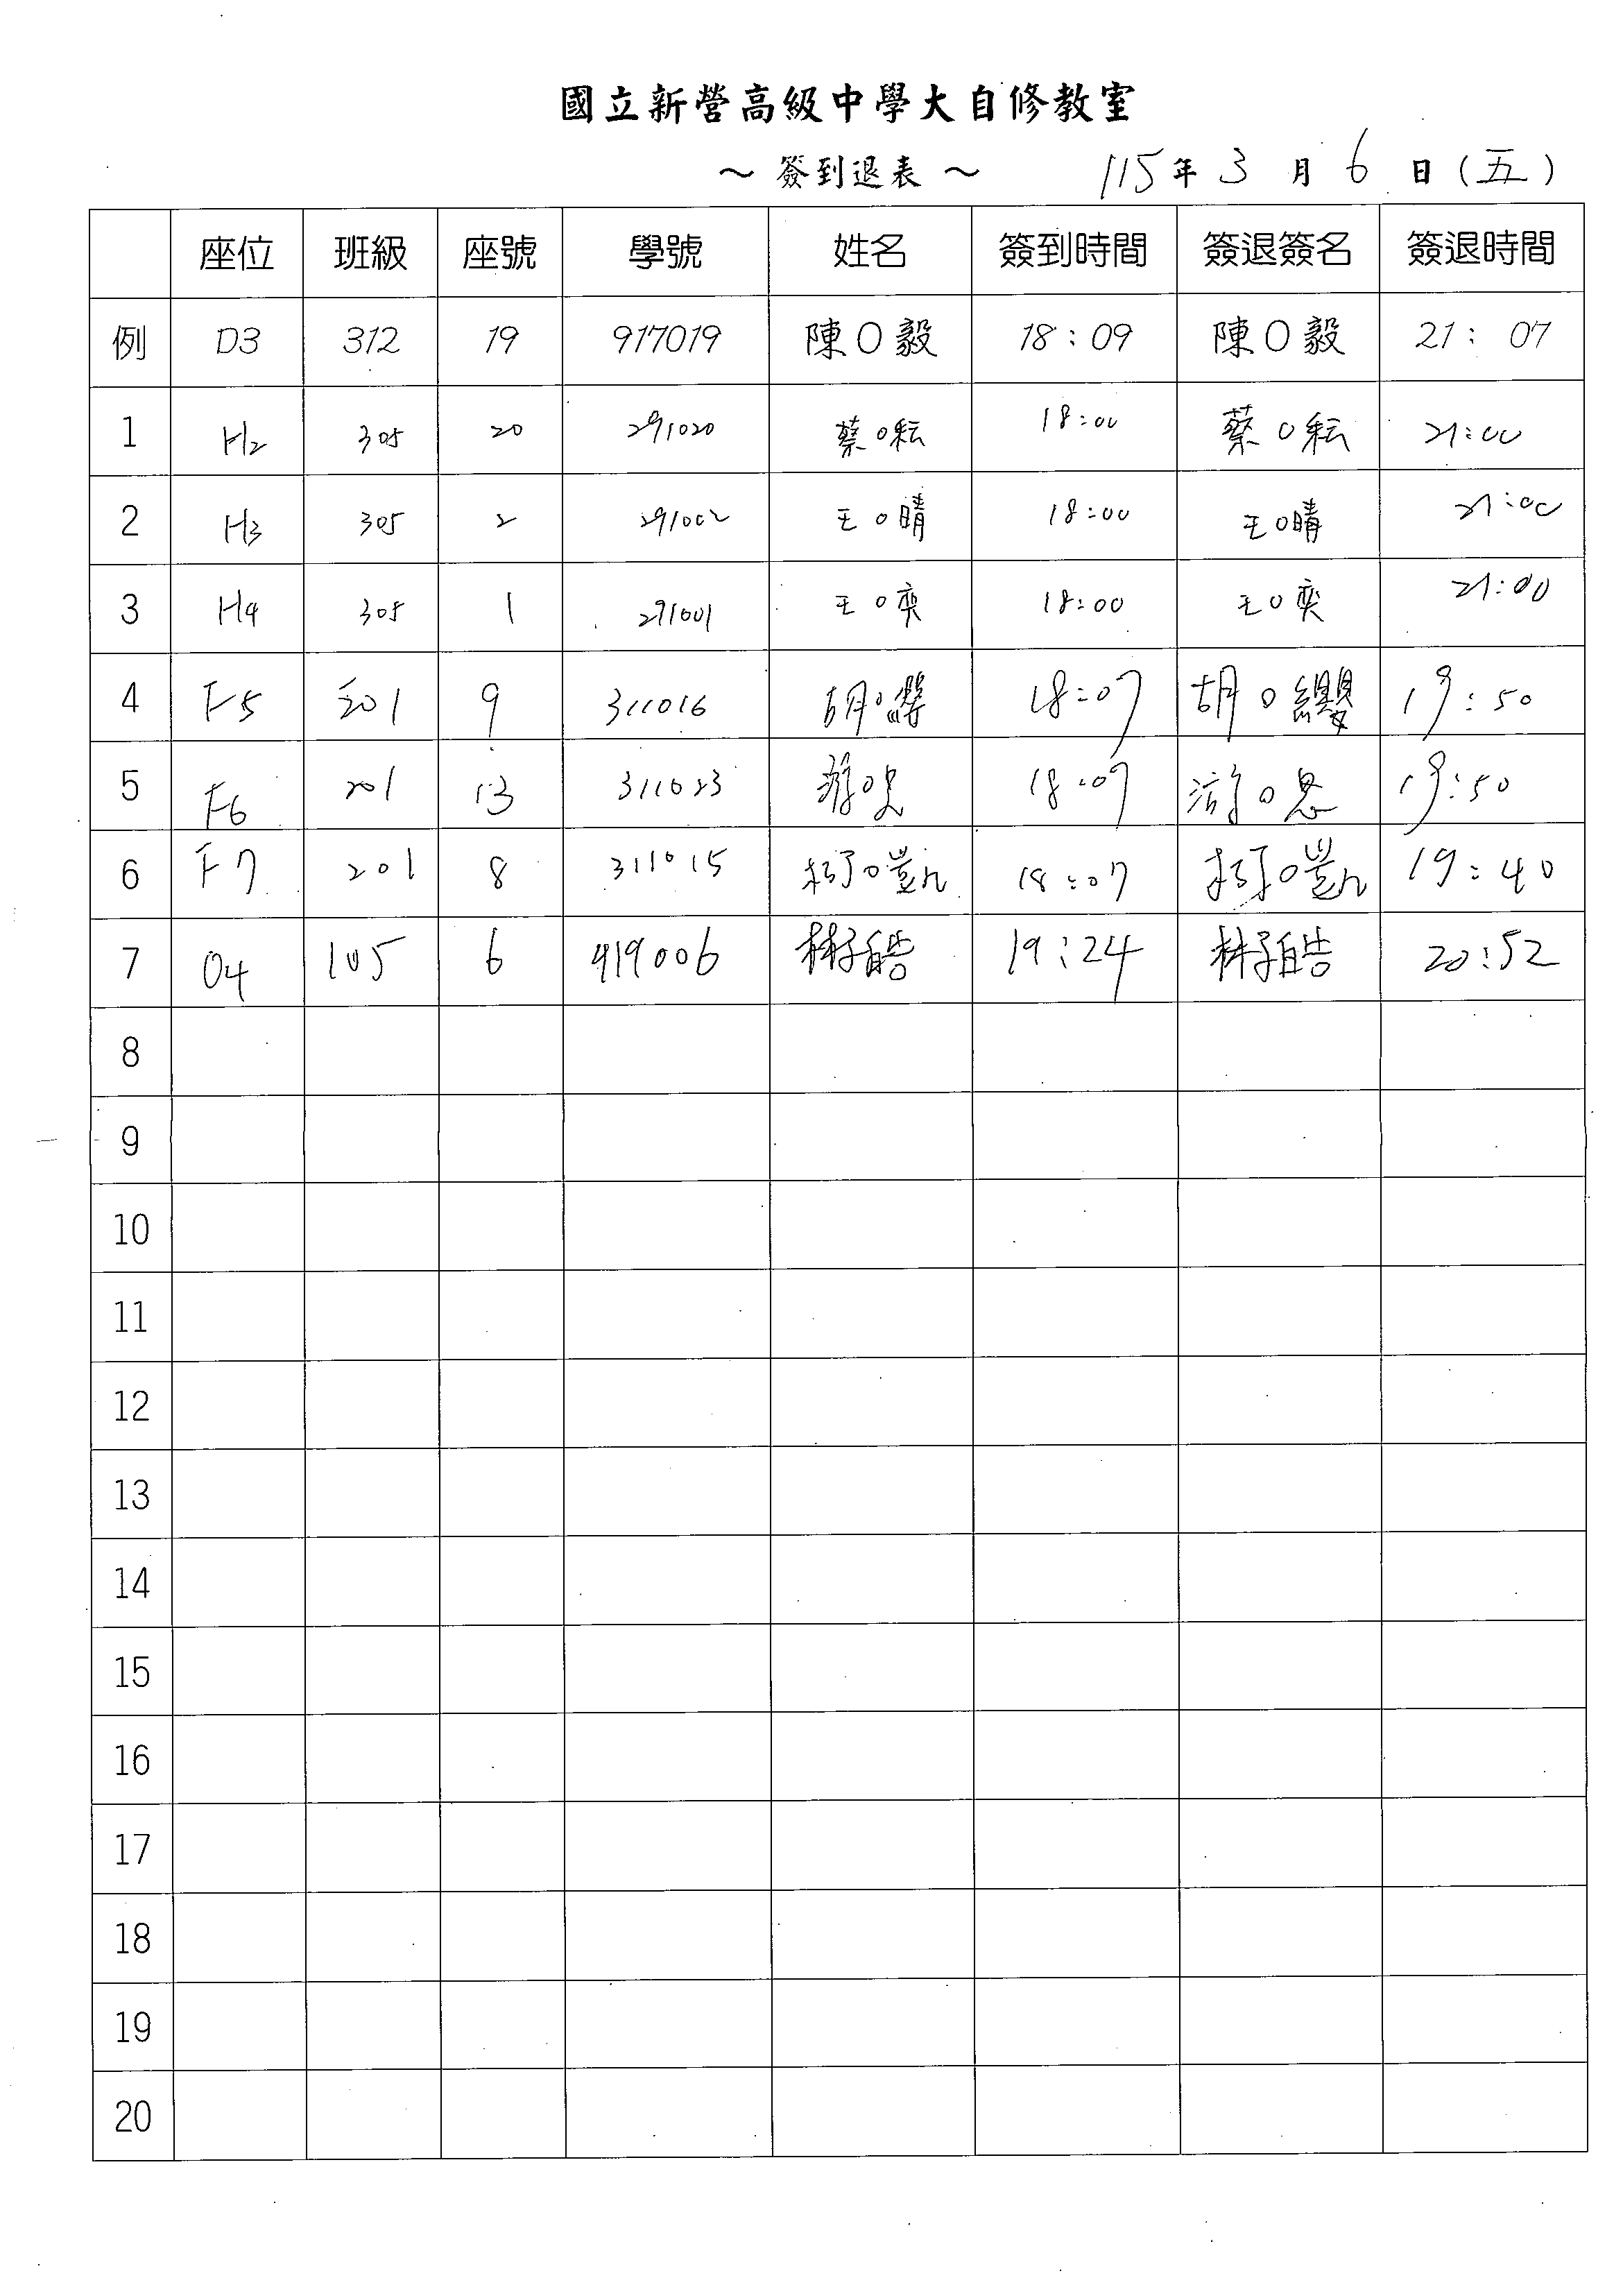 國立新營高級中學大自修教室
～ 簽到退表 ～ 115年 3 月 6 日(五)
座位 班級 座號 學號 姓名 簽到時間 簽退簽名 簽退時間
例 D3 312 19 917019 陳O毅 18:09 陳O毅 21:07
1 H2 305 20 291020 蔡O耘 18:00 蔡O耘 21:00
2 H3 305 2 291002 王O晴 18:00 王O晴 21:00
3 H4 305 1 291001 王O奕 18:00 王O奕 21:00
4 F5 201 9 311016 胡O纓 18:07 胡O纓 19:50
5 F6 201 13 311023 游O恩 18:07 游O恩 19:50
6 F7 201 8 311015 柯O凱 18:07 柯O凱 19:40
7 O4 105 6 419006 林子皓 19:24 林子皓 20:52
8
9
10
11
12
13
14
15
16
17
18
19
20